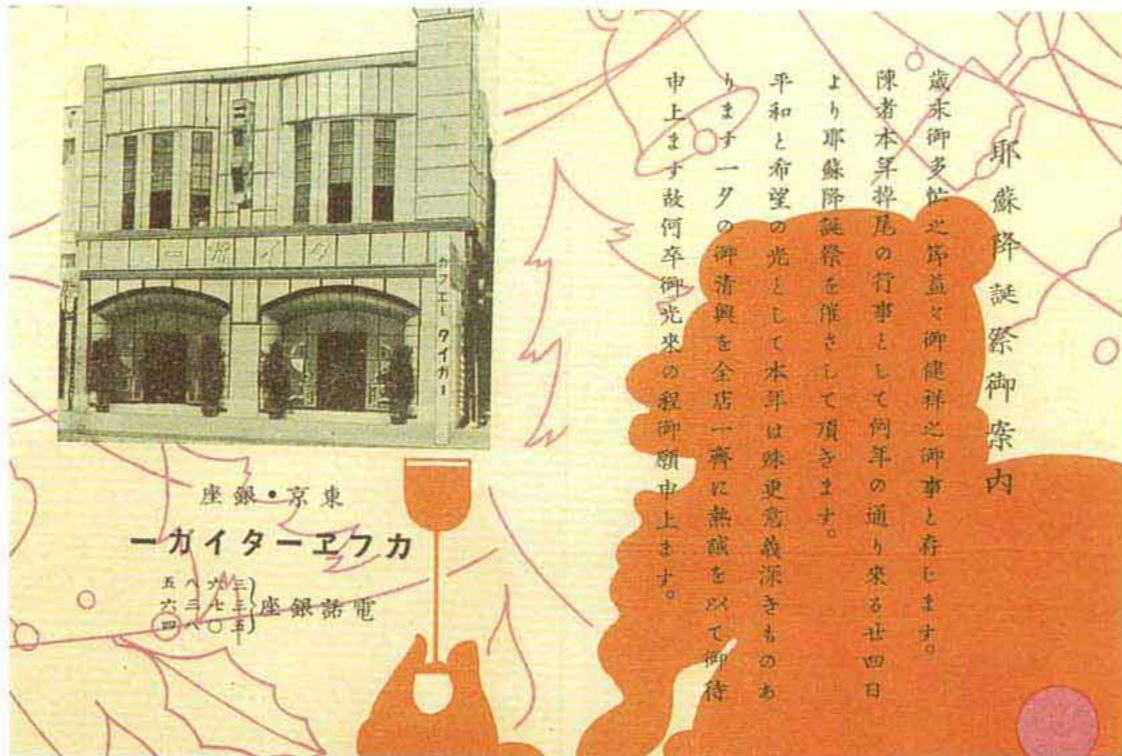 耶蘇降誕祭御案内
歳末御多忙之節益々御健祥之御事と存じます。
陳者本年掉尾の行事として例年の通り來る廿四日
より耶蘇降誕祭を催さして頂きます。
平和と希望の光として本年は殊更意義深きものあ
ります一夕の御清興を全店一齊に熱誠を以て御待
申上ます故何卒御光來の程御願申上ます。
タイガー
カフエー タイガー
東京・銀座
カフヱータイガー
電話銀座
三六八五
三七三六
五〇八四